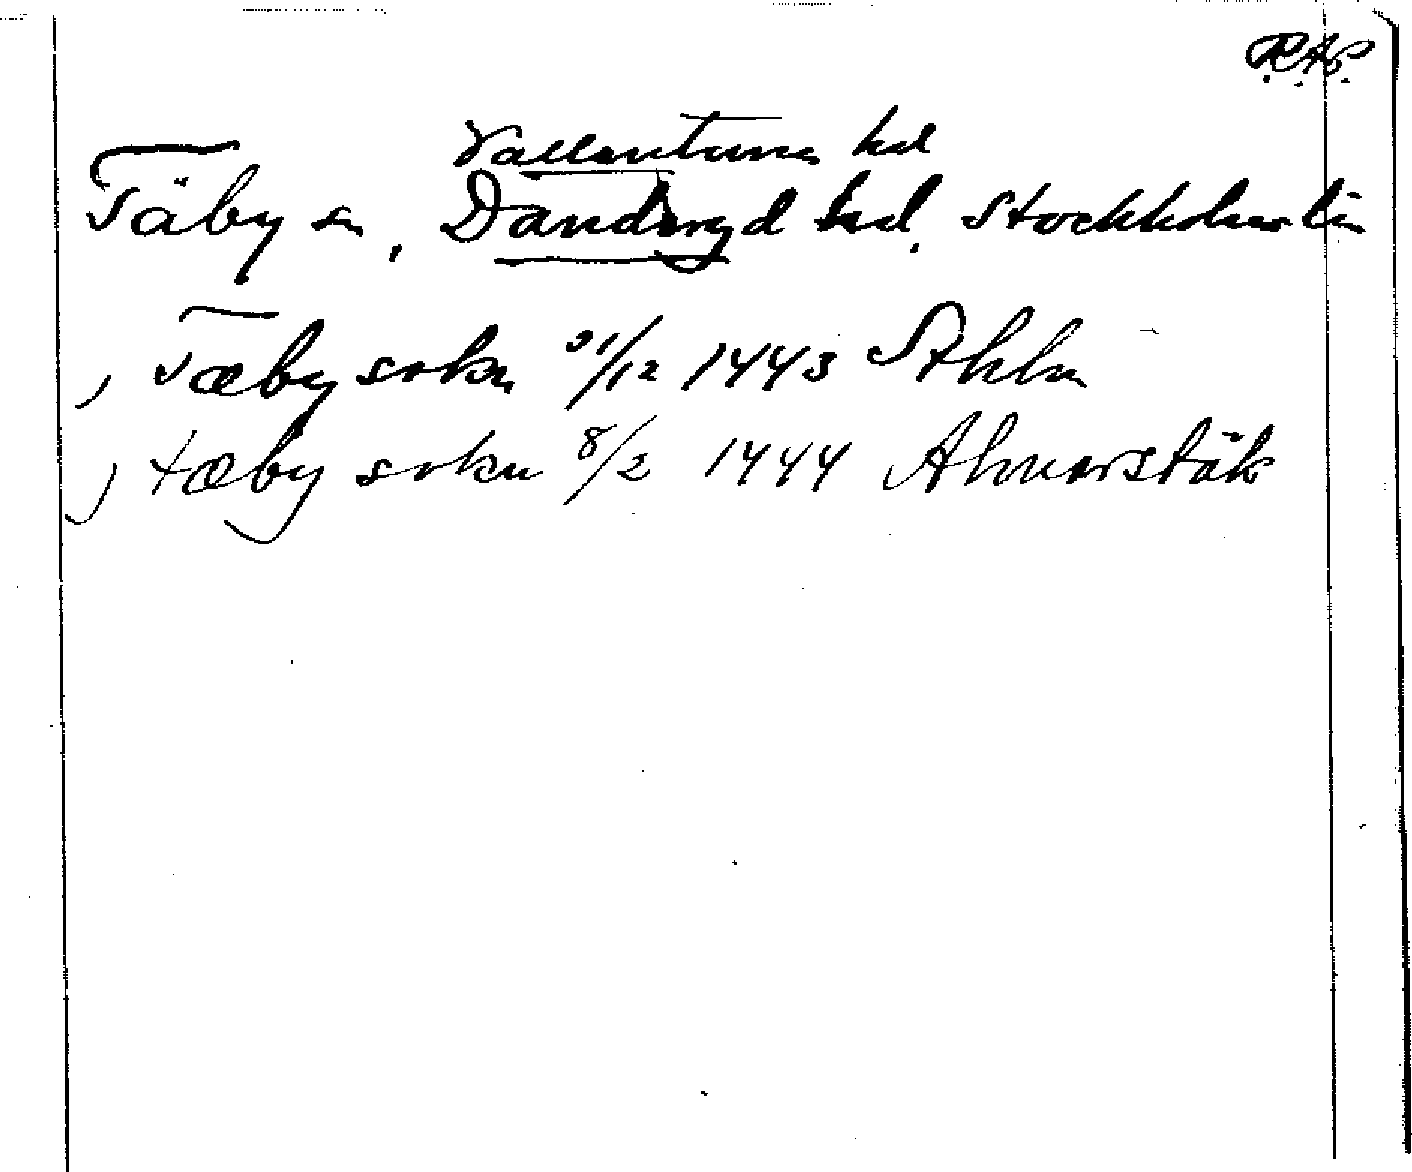 R.A.P.
Vallentuna hd
Täby sn, Danderyd hd, Stockholms län
, Tæby sokn 21/12 1443 Sthlm
, tæby sokn 8/2 1444 Almarstäk